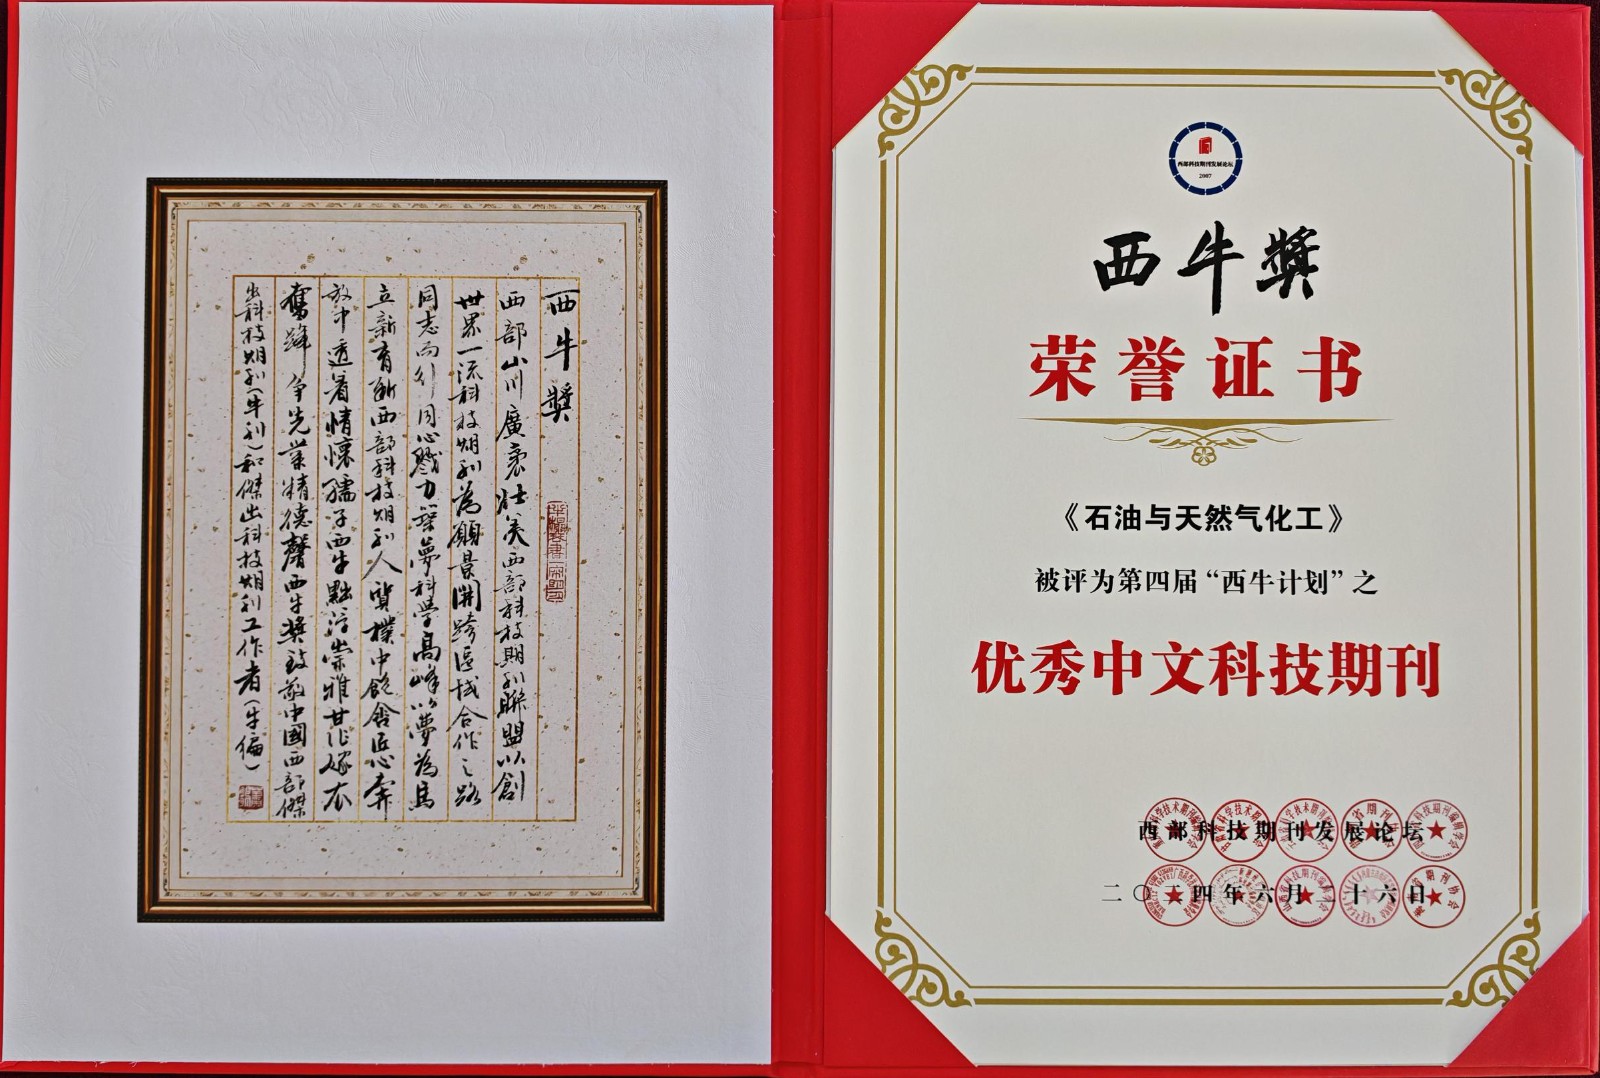 西牛獎
西部山川廣袤壯美西部科技期刊聯盟以創
世界一流科技期刊為願景開跨區域合作之路
同志而行同心戮力釋夢科學高峰以夢為馬
立新育新西部科技期刊人質樸中飽含匠心奔
放中透着情懷孺子西牛黜浮崇雅甘作嫁衣
奮蹄爭先業精德馨西牛獎致敬中國西部傑
出科技期刊(牛刊)和傑出科技期刊工作者(牛編)
西部科技期刊发展论坛
2007
西牛獎
荣誉证书
《石油与天然气化工》
被评为第四届“西牛计划”之
优秀中文科技期刊
西部科技期刊发展论坛
二〇二四年六月二十六日